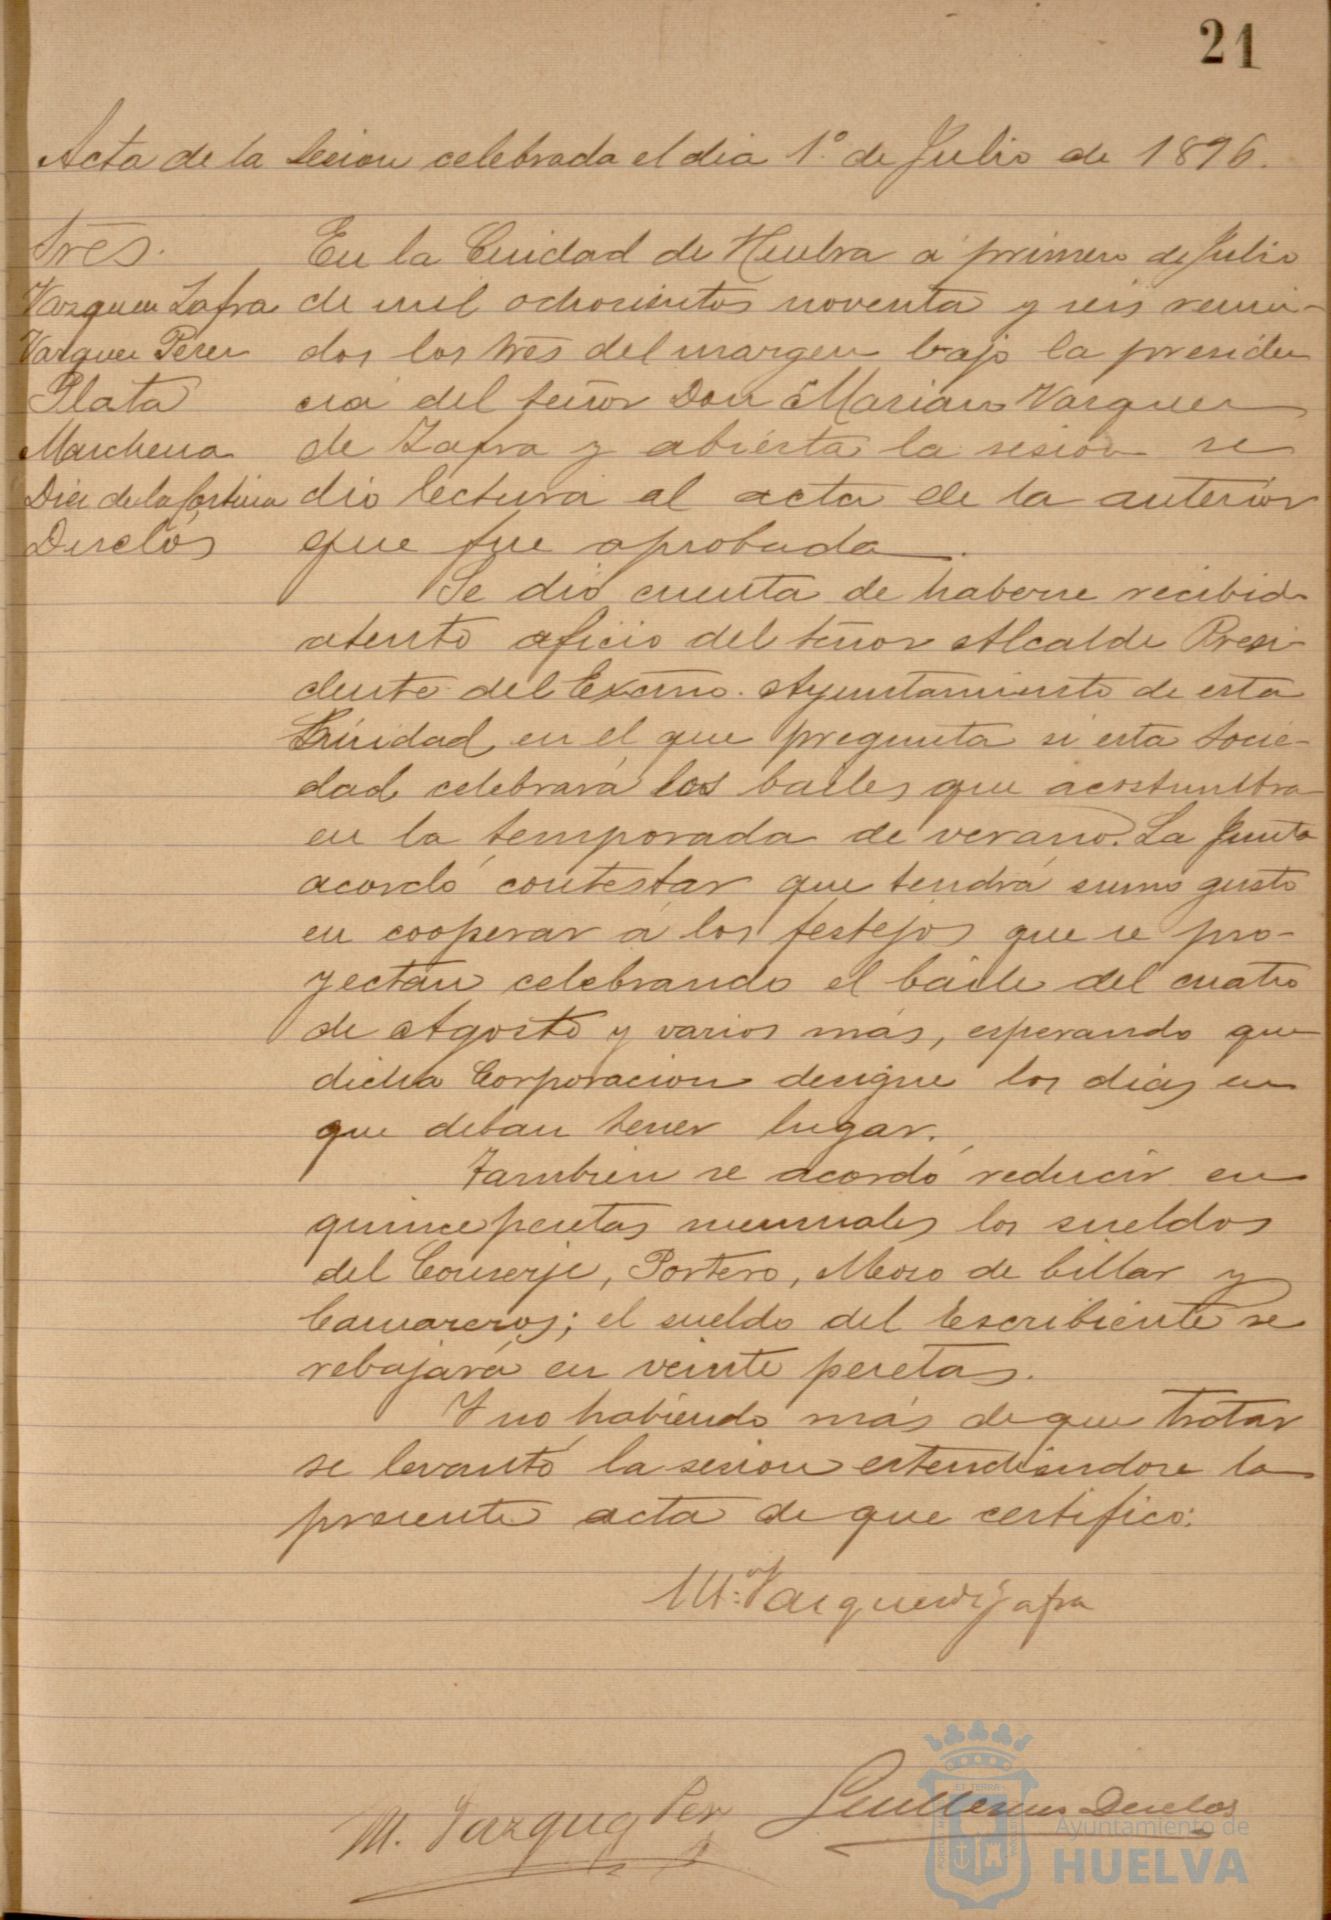 21
Acta de la Sesion celebrada el dia 1º de Julio de 1896.
Sres.
Vazquez Zafra
Vazquez Perez
Plata
Marchena
Diez de la Cortina
Duclós
En la Ciudad de Huelva á primero de Julio
de mil ochocientos noventa y seis reuni-
dos los sres del margen bajo la presiden
cia del señor Don Mariano Vazquez
de Zafra y abierta la sesión se
dió lectura al acta de la anterior
que fue aprobada.
Se dió cuenta de haberse recibido
atento oficio del señor Alcalde Presi-
dente del Excmo. Ayuntamiento de esta
Ciudad, en el que pregunta si esta Socie-
dad celebrará los bailes que acostumbra
en la temporada de verano. La Junta
acordó contestar que tendrá sumo gusto
en cooperar á los festejos que se pro-
yectan celebrando el baile del cuatro
de Agosto y varios más, esperando que
dicha Corporacion designe los dias en
que deban tener lugar.
Tambien se acordó reducir en
quince pesetas mensuales los sueldos
del Conserje, Portero, Mozo de billar y
Camareros; el sueldo del Escribiente se
rebajará en veinte pesetas.
Y no habiendo más de que tratar
se levantó la sesion estendiendose la
presente acta de que certifico:
M. Vazquez de Zafra
M. Vazquez Perez
Guillermo Duclos
Ayuntamiento de
HUELVA